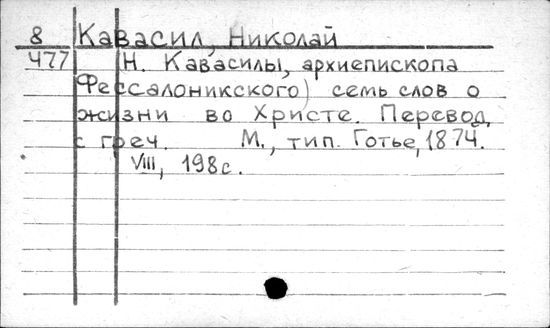 8 Кавасил, Николай
477 Н. Кавасилы, архиепископа
Фессалоникского) семь слов о
жизни во Христе. Перевод
с греч. М., тип. Готье, 1874.
VIII, 198с.